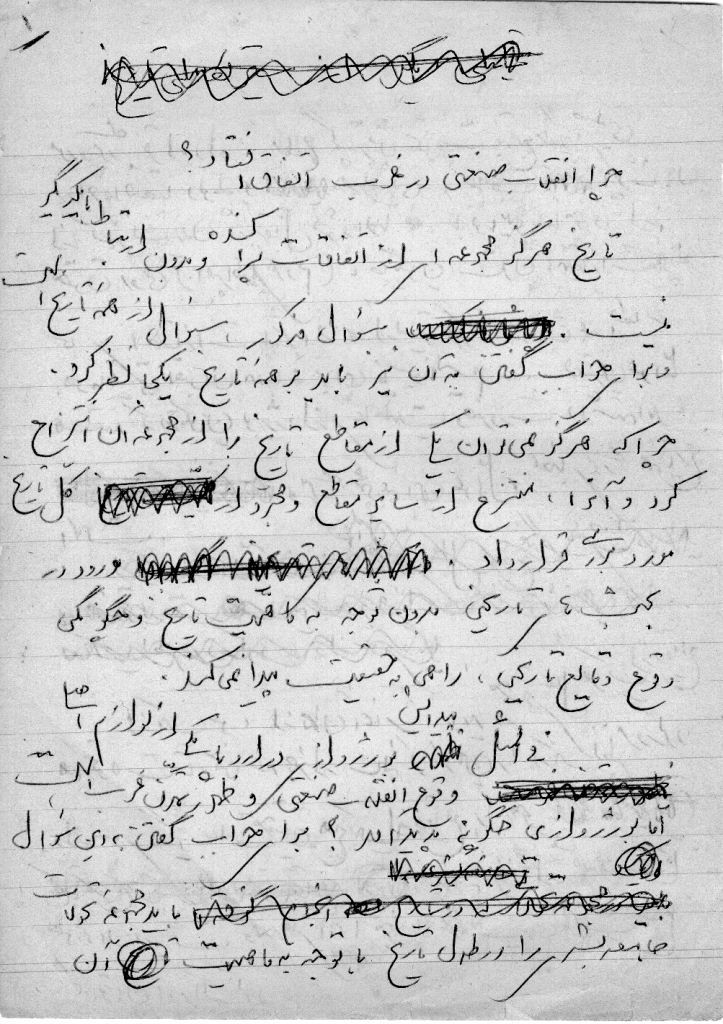 چرا انقلاب صنعتی در غرب اتفاق افتاد؟
تاریخ هرگز مجموعه‌ای از اتفاقات پراکنده و بدون ارتباط با یکدیگر
نیست. سؤال مذکور، سؤال از همهٔ تاریخ است
و برای جواب گفتن به آن نیز باید بر همهٔ تاریخ یکجا نظر کرد.
چرا که هرگز نمی‌توان یکی از مقاطع تاریخ را از مجموعه آن اخراج
کرد و آنرا، منتزع از سایر مقاطع و مجرد از کل تاریخ
مورد بررسی قرار داد. ورود در
بحث‌های تاریخی بدون توجه به ماهیت تاریخ و چگونگی
وقوع وقایع تاریخی، راهی به حقیقت پیدا نمی‌کند.
فی‌المثل پیدایی بورژوازی در اروپا یکی از لوازم اساسی
وقوع انقلاب صنعتی و ظهور تمدن غرب است
اما بورژوازی چگونه پدید آمد؟ برای جواب گفتن به این سؤال
باید مجموعه تحولات
جامعه بشری را در طول تاریخ با توجه به ماهیت آن